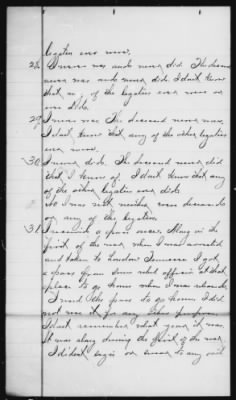 legatees ever were.
28 I never was and never did. The deceased
never was and never did. I don't know
that any of the legatees ever were or
ever did.
29 I never was. The deceased never was.
I don't know that any of the other legatees
ever were.
30 I never did. The deceased never did
that I know of. I don't know that any
of the other legatees ever did.
No I was not neither was deceased
or any of the legatees.
31 I received a pass once. Along in the
first of the war when I was arrested
and taken to London Tennessee I got
a pass from some rebel officer at that
place to go home when I was released.
I used the pass to go home. I did
not use it for any other purpose.
I don't remember what year it was.
It was along during the first of the war.
I didn't sign or swear to any oath